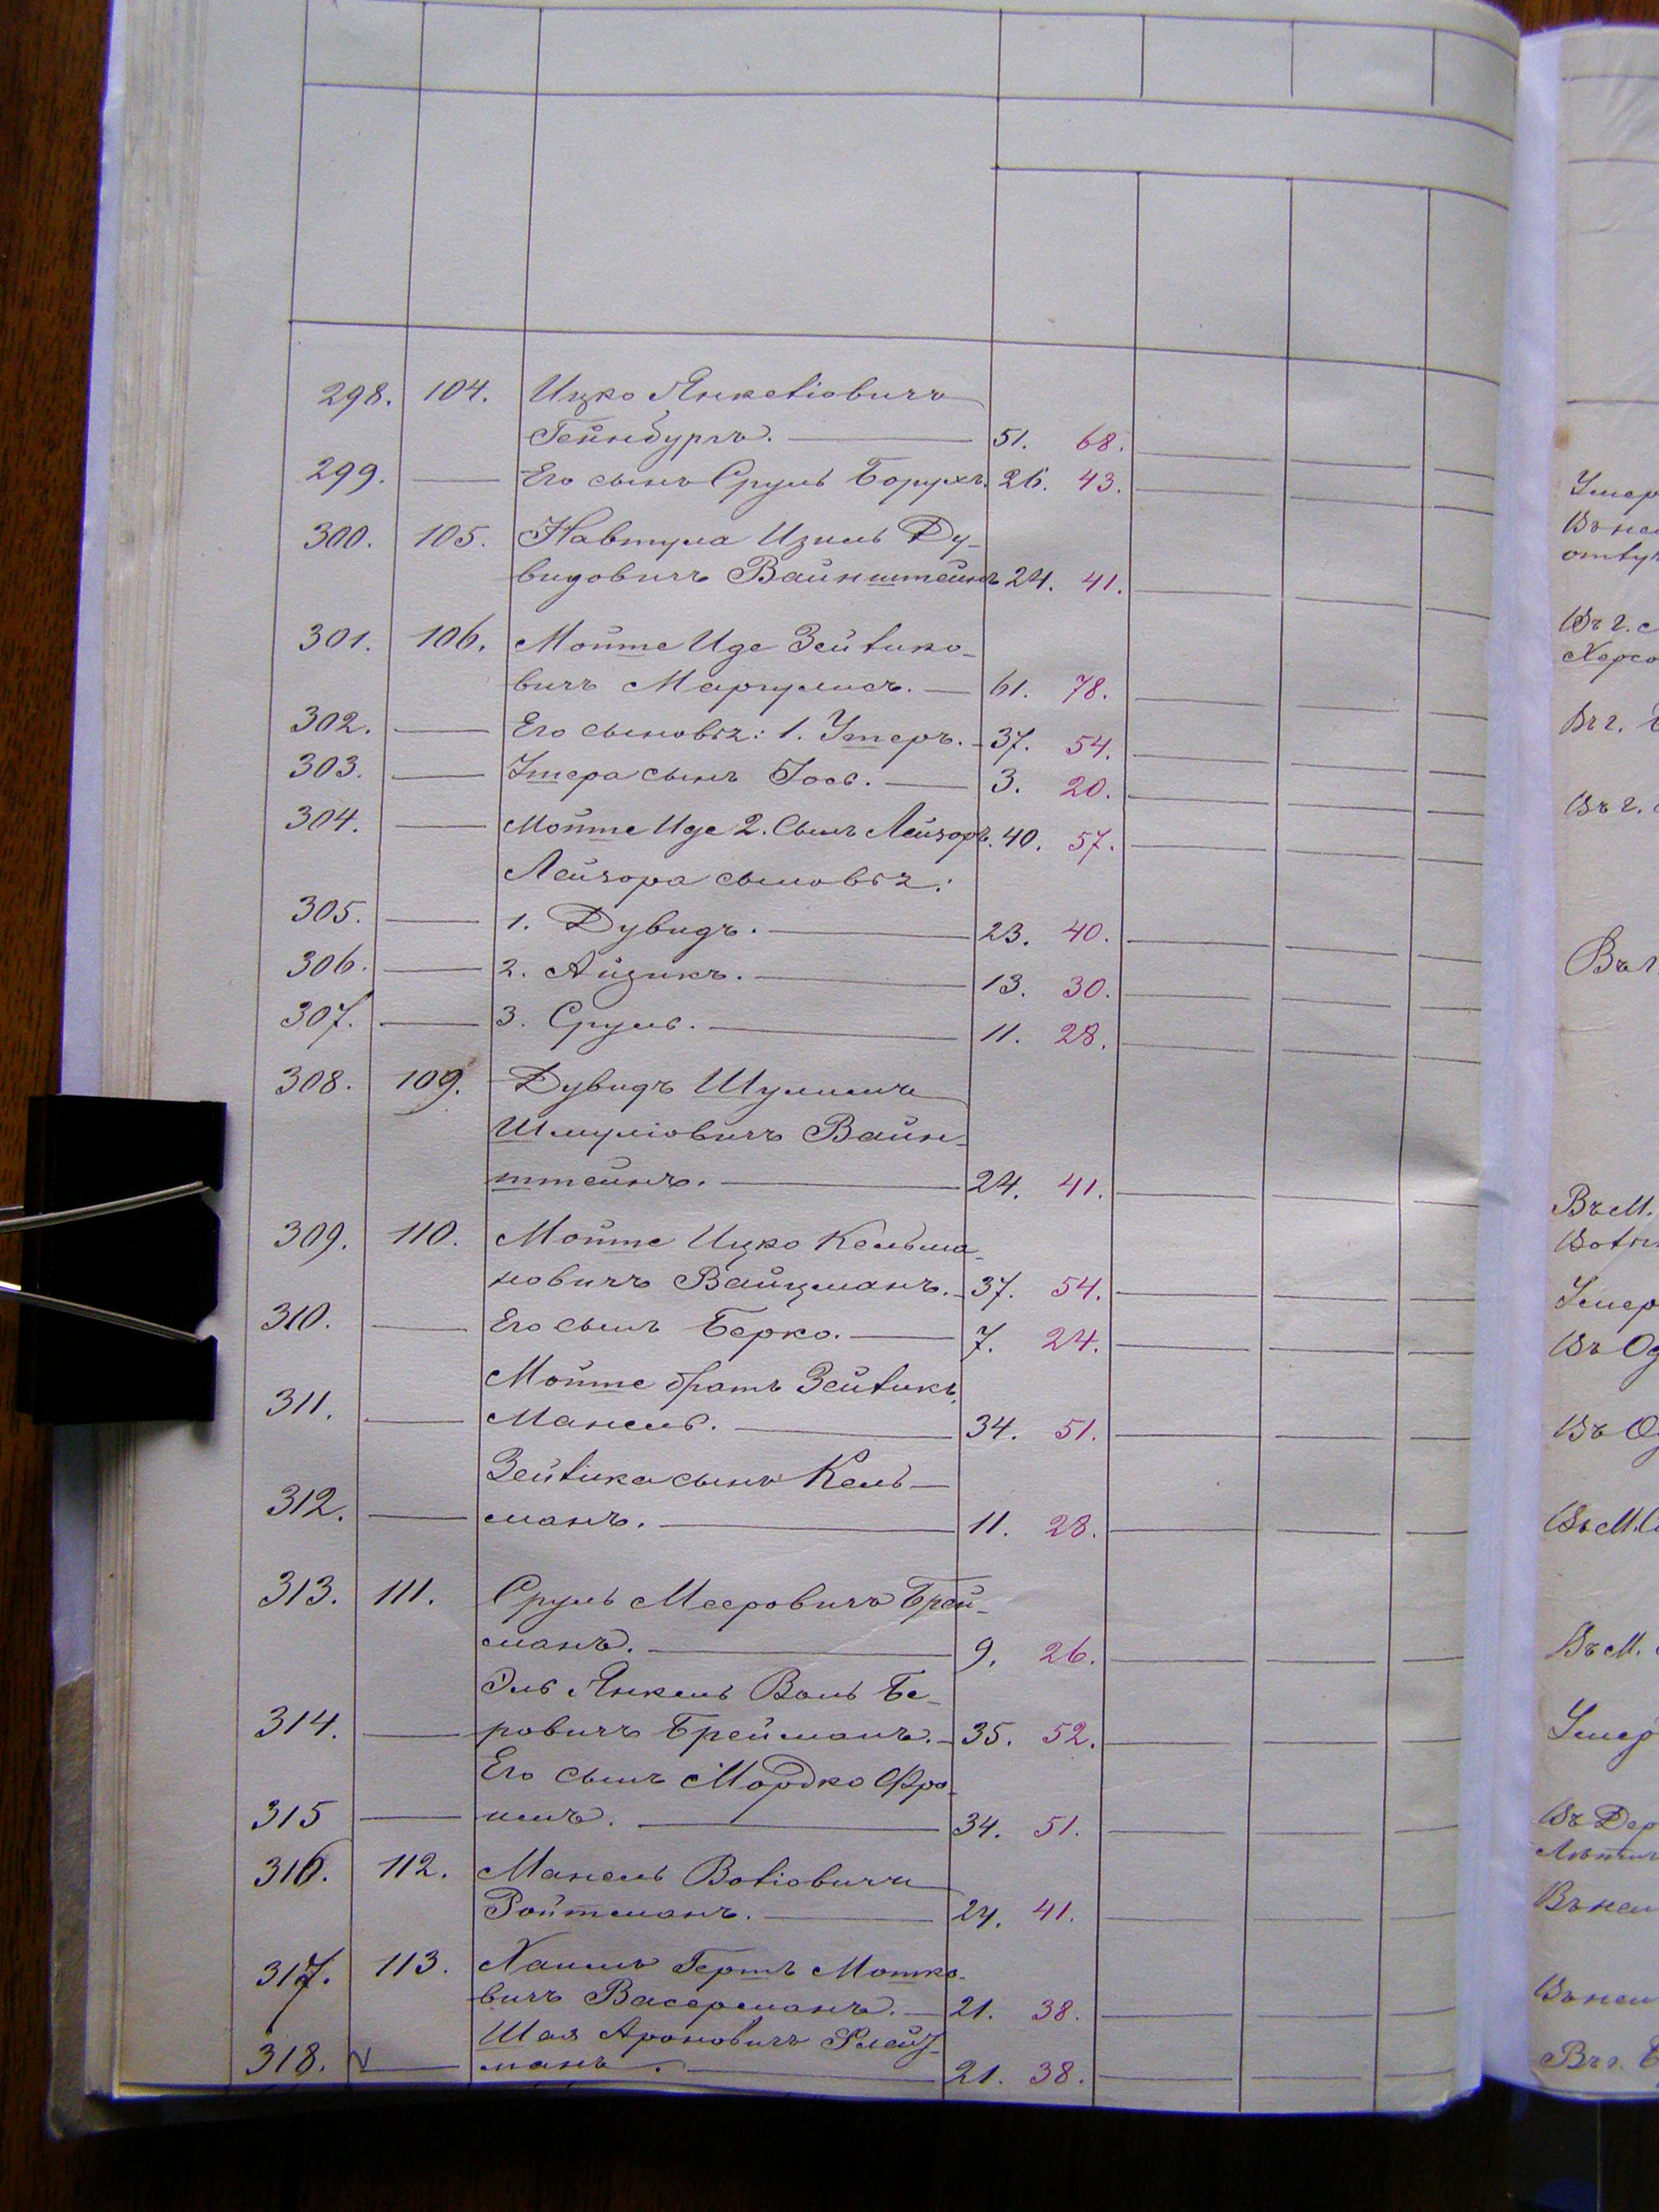 298. 104. Ицко Янкелiовичъ
Гейнбургъ. 51. 68.
299. Его сынъ Сруль Борухъ. 26. 43.
300. 105. Навтула Изиль Ду-
видовичъ Вайнштейнъ 24. 41.
301. 106. Мошке Иде Зейлико-
вичъ Маргулисъ. 61. 78.
302. Его сыновья: 1. Умеръ. 37. 54.
303. сынъ Iось. 3. 20.
304. Иде 2. Сынъ Лейзоръ. 40. 57.
Лейзора сыновья:
305. 1. Дувидъ. 23. 40.
306. 2. Айзикъ. 13. 30.
307. 3. Сруль. 11. 28.
308. 109. Дувидъ Шулимъ
Шмулiовичъ Вайн-
штейнъ. 24. 41.
309. 110. Ицко Кельма-
новичъ Вайцманъ. 37. 54.
310. Его сынъ Берко. 7. 24.
братъ Зейликъ
311. Манель. 34. 51.
Зейлика сынъ Кель-
312. манъ. 11. 28.
313. 111. Сруль Мееровичъ Брей-
манъ. 9. 26.
Эль Янкель Воль Бе-
314. ровичъ Брейманъ. 35. 52.
Его сынъ Мордко Фро-
315 имъ. 34. 51.
316. 112. Манель Волiовичъ
Ройтманъ. 24. 41.
317. 113. Хаимъ Гершъ Мошко-
вичъ Васерманъ. 21. 38.
Шая Ароновичъ Глейз-
318. манъ. 21. 38.
Умер
Въ г. с
Херсо
Въ г.
Въ г.
Въ г
Въ М.
Умер
Въ Од
Въ О
Въ М.
Въ М.
Умер
Въ Дер
Въ г.